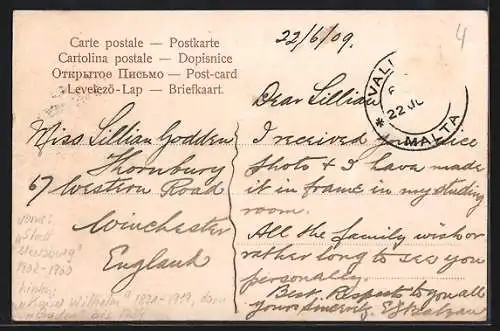 Carte postale — Postkarte
Cartolina postale — Dopisnice
Открытое Письмо — Post-card
Levelező-Lap — Briefkaart.
22/6/09.
4
VAL
22 JU
* MALTA
Miss Lillian Godden
Thornbury
67 Western Road
Winchester
England
Dear Lillian
I received nice
photo & I have made
it in frame in my studing
room.
All the family wish or
rather long to see you
personally.
Best Respects to you all
yours sincerely.
vorne:
1902-1960
hinten:
Wilhelm"